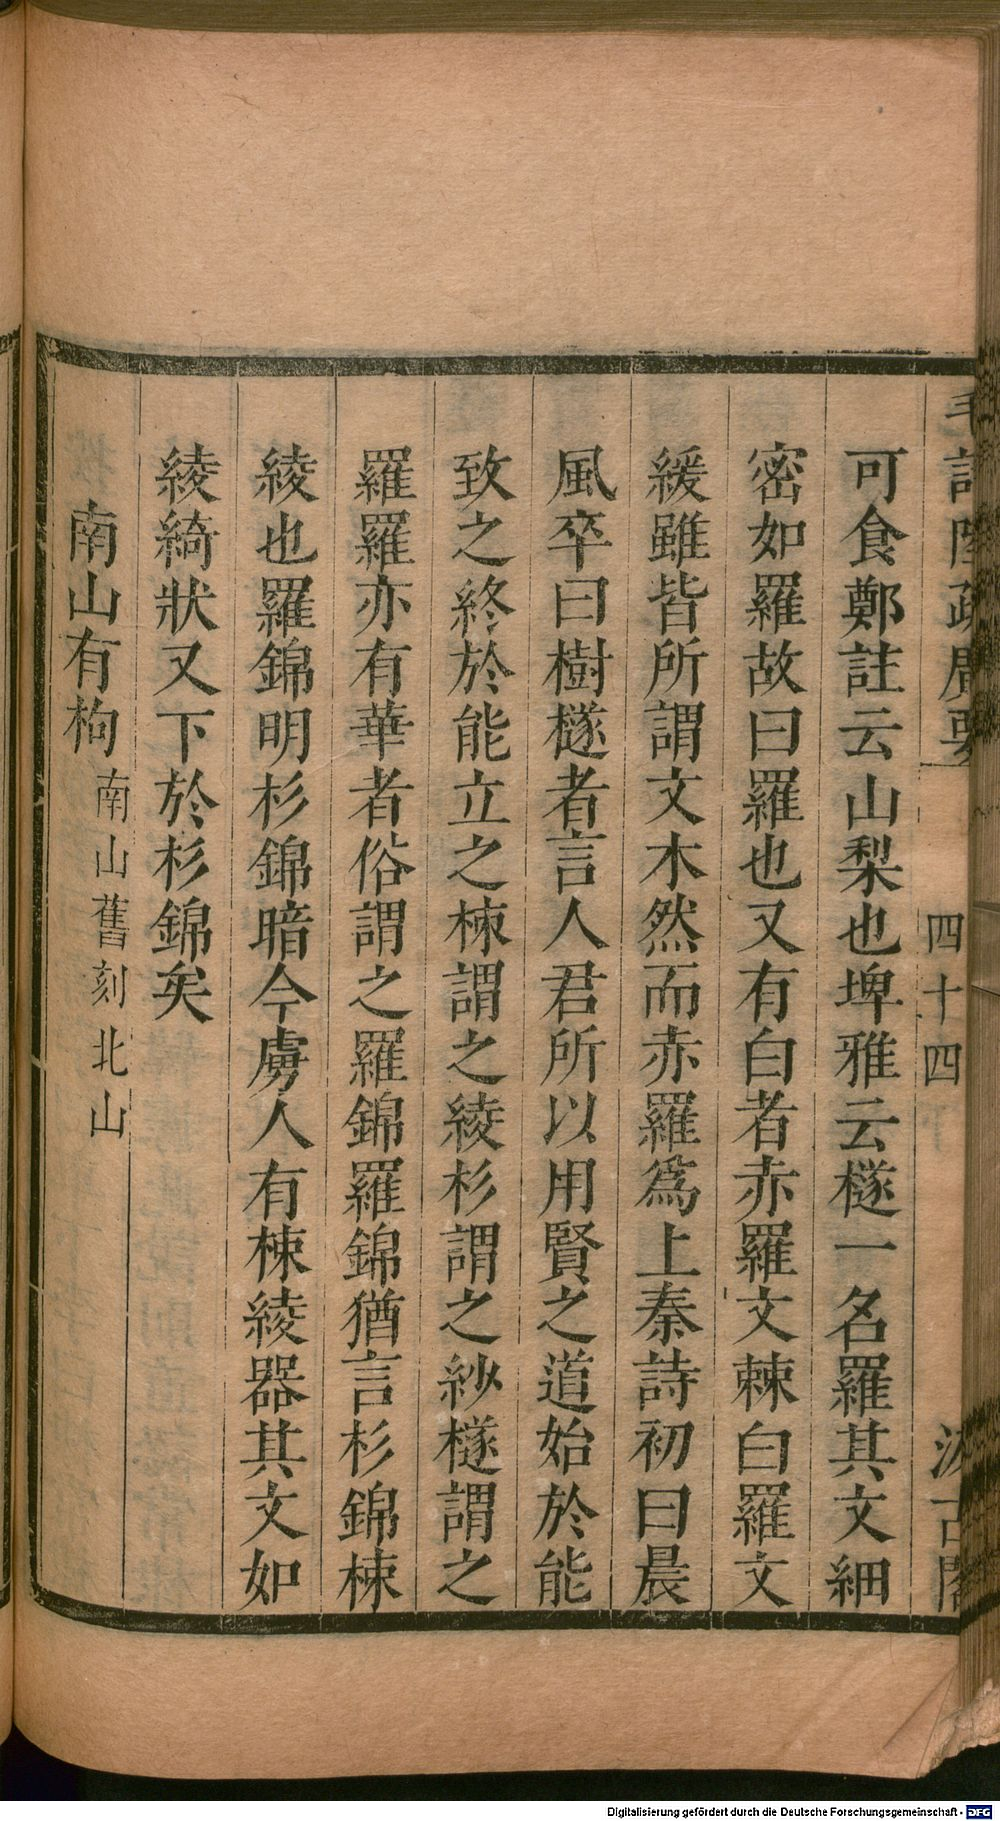 毛詩陸疏廣要 四十四 汲古閣
可食鄭註云山梨也埤雅云檖一名羅其文細
密如羅故曰羅也又有白者赤羅文棘白羅文
緩雖皆所謂文木然而赤羅爲上秦詩初曰晨
風卒曰樹檖者言人君所以用賢之道始於能
致之終於能立之楝謂之綾杉謂之紗檖謂之
羅羅亦有華者俗謂之羅錦羅錦猶言杉錦楝
綾也羅錦明杉錦暗今虜人有楝綾器其文如
綾綺狀又下於杉錦矣
南山有枸 南山舊刻北山
Digitalisierung gefördert durch die Deutsche Forschungsgemeinschaft - DFG